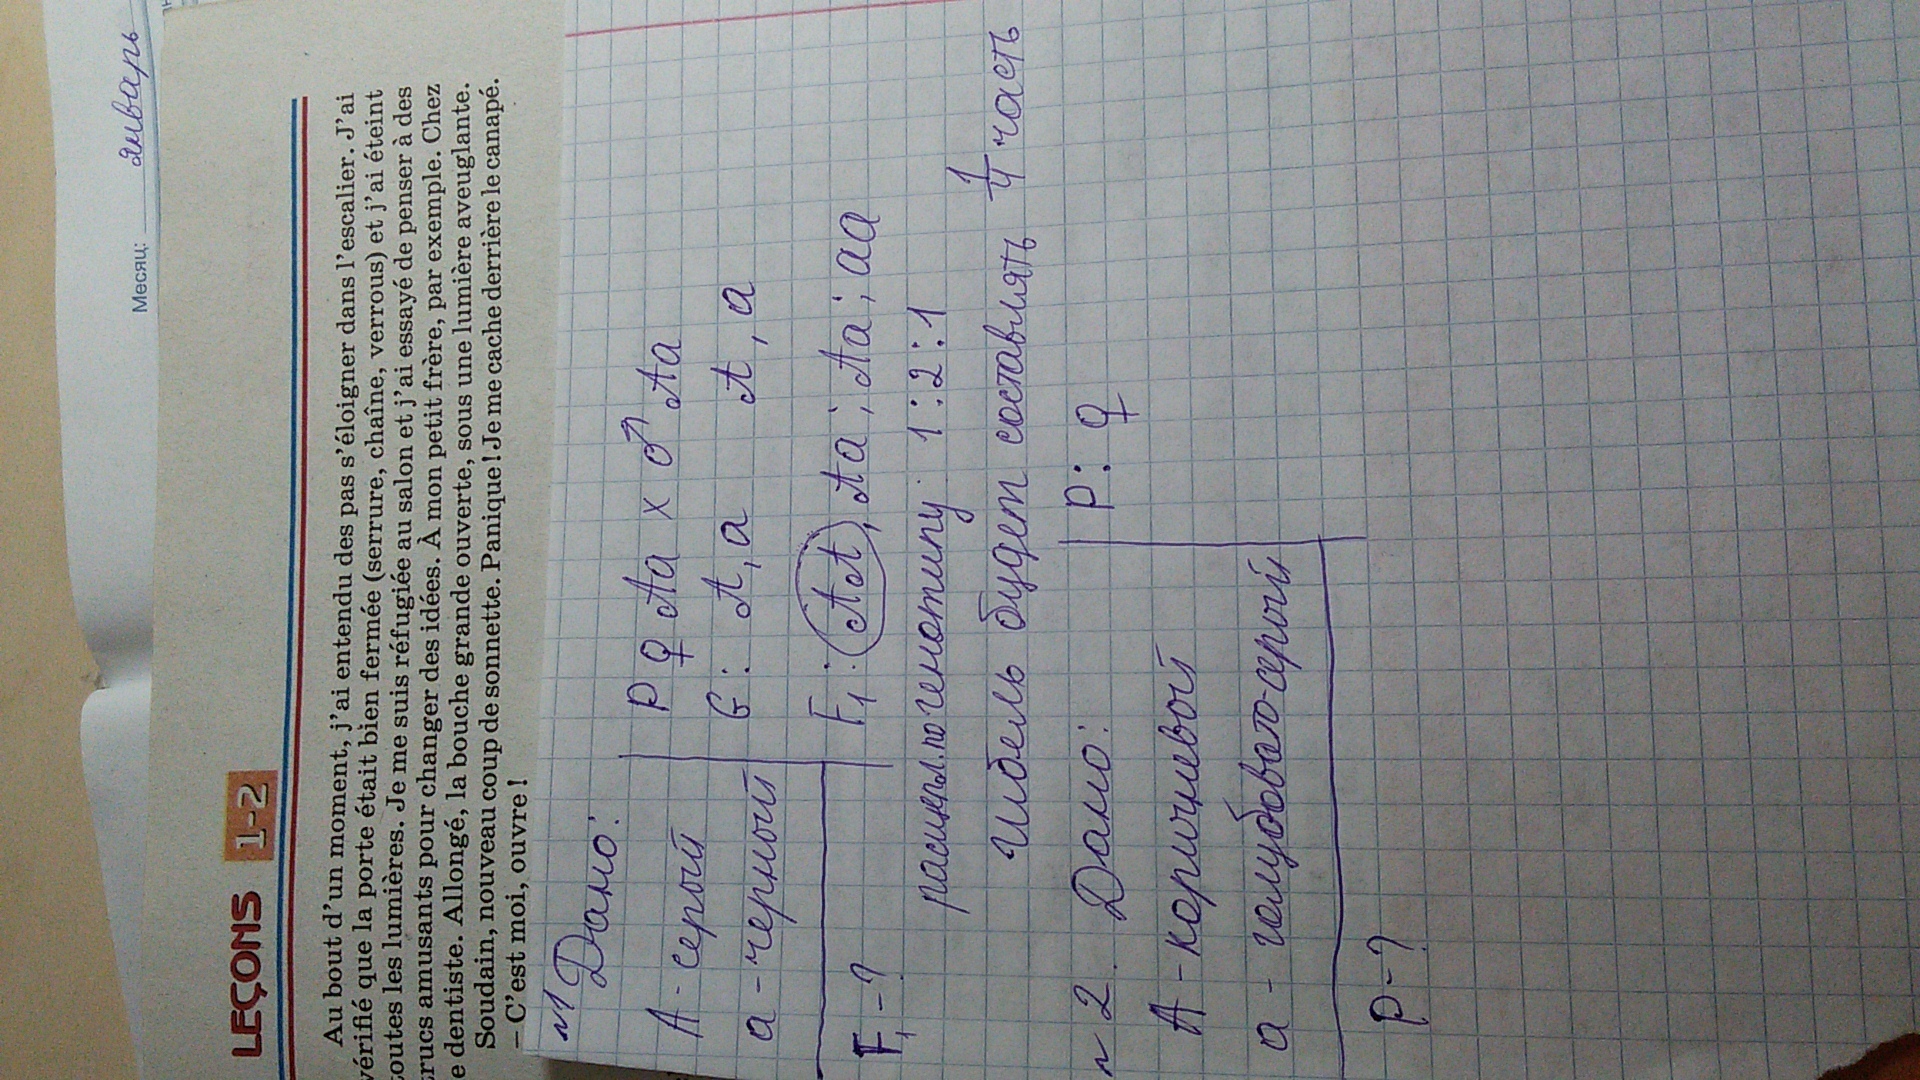 Месяц: январь
LEÇONS 1-2
Au bout d'un moment, j'ai entendu des pas s'éloigner dans l'escalier. J'ai
vérifié que la porte était bien fermée (serrure, chaîne, verrous) et j'ai éteint
toutes les lumières. Je me suis réfugiée au salon et j'ai essayé de penser à des
trucs amusants pour changer des idées. À mon petit frère, par exemple. Chez
e dentiste. Allongé, la bouche grande ouverte, sous une lumière aveuglante.
Soudain, nouveau coup de sonnette. Panique ! Je me cache derrière le canapé.
– C'est moi, ouvre !
№1
Дано:
A - серый
a - черный
F₁ - ?
P ♀ Aa x ♂ Aa
G: A, a A, a
F₁: AA, Aa; Aa; aa
расщепл. по генотипу 1:2:1
Гибель будет составлять 1/4 часть
№2. Дано:
A - коричневый
a - голубовато-серый
P - ?
P: ♀